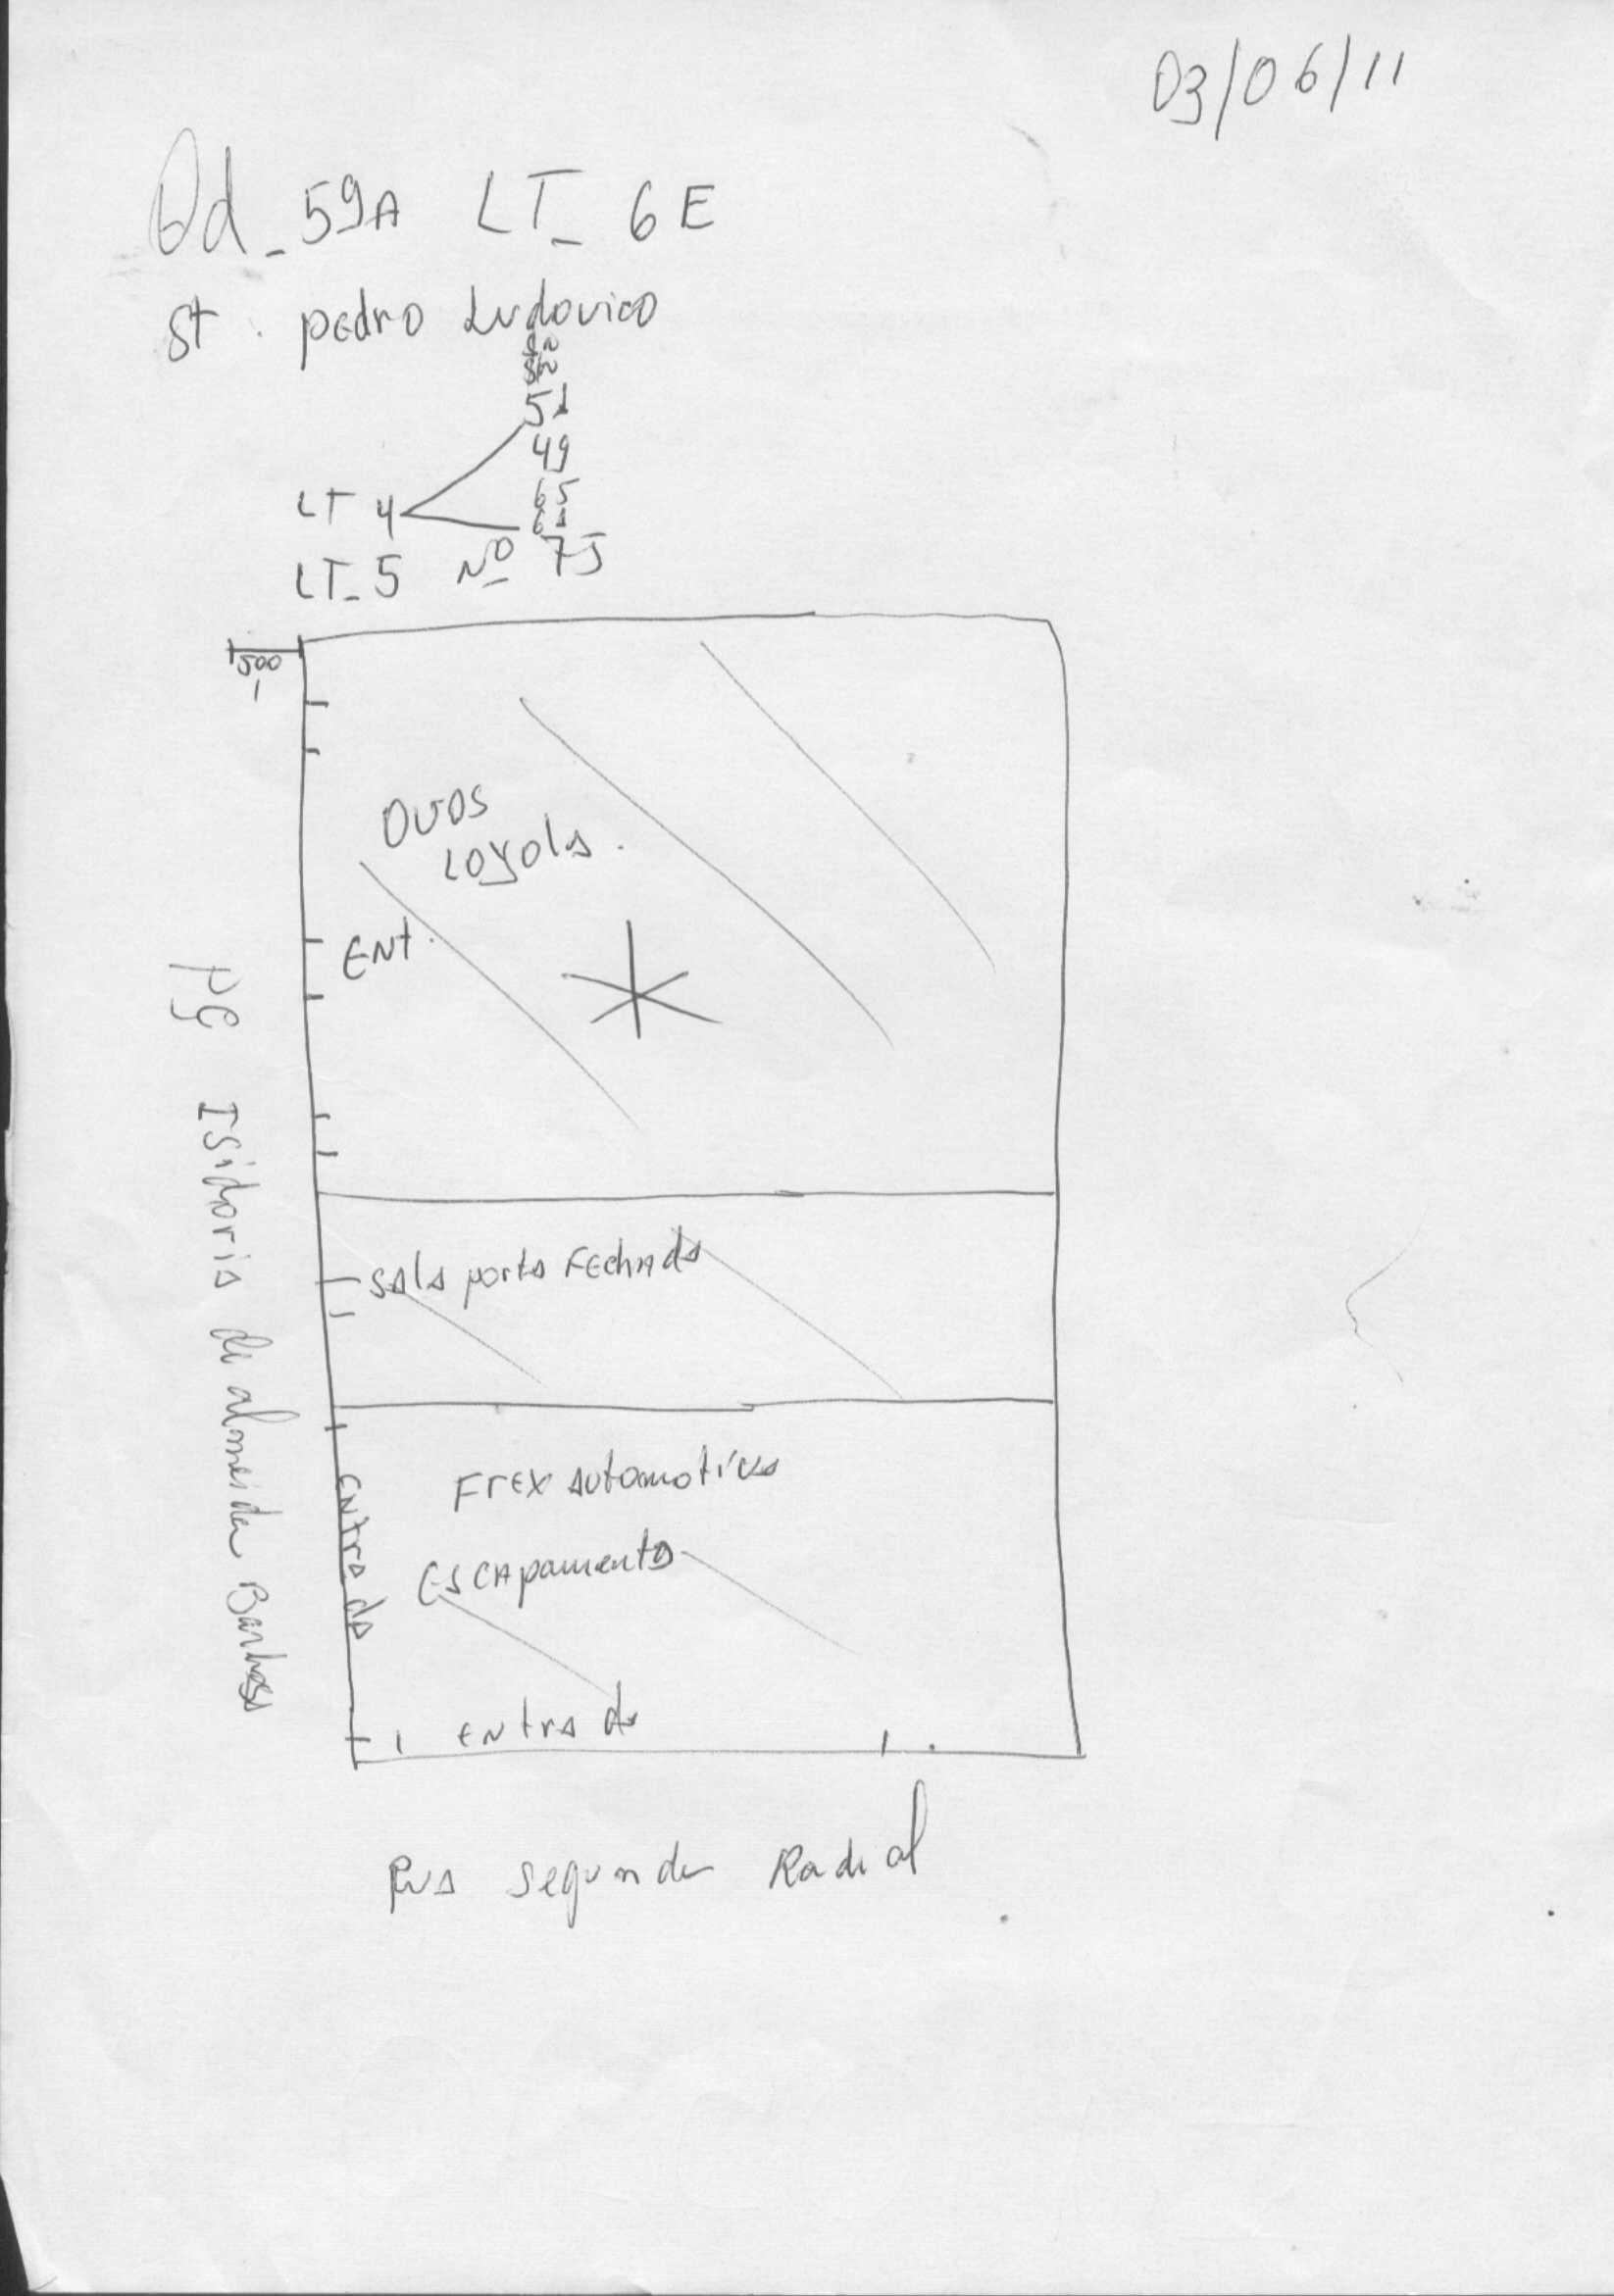 03/06/11
Qd_59A LT_ 6E
St. pedro Ludovico
49
LT 4
LT_5 Nº 75
500
OVOS
Loyola.
ENT.
Isidoria de almeida Barbosa
Sala porta FEchada
Frex automotiva
Entrada
Escapamento
entrada
Rua segunda Radial